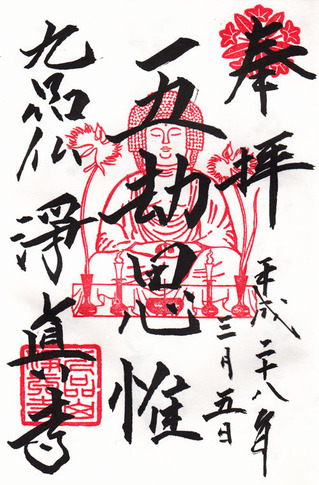 奉拝
平成二十八年
三月五日
五劫思惟
九品仏
淨真寺